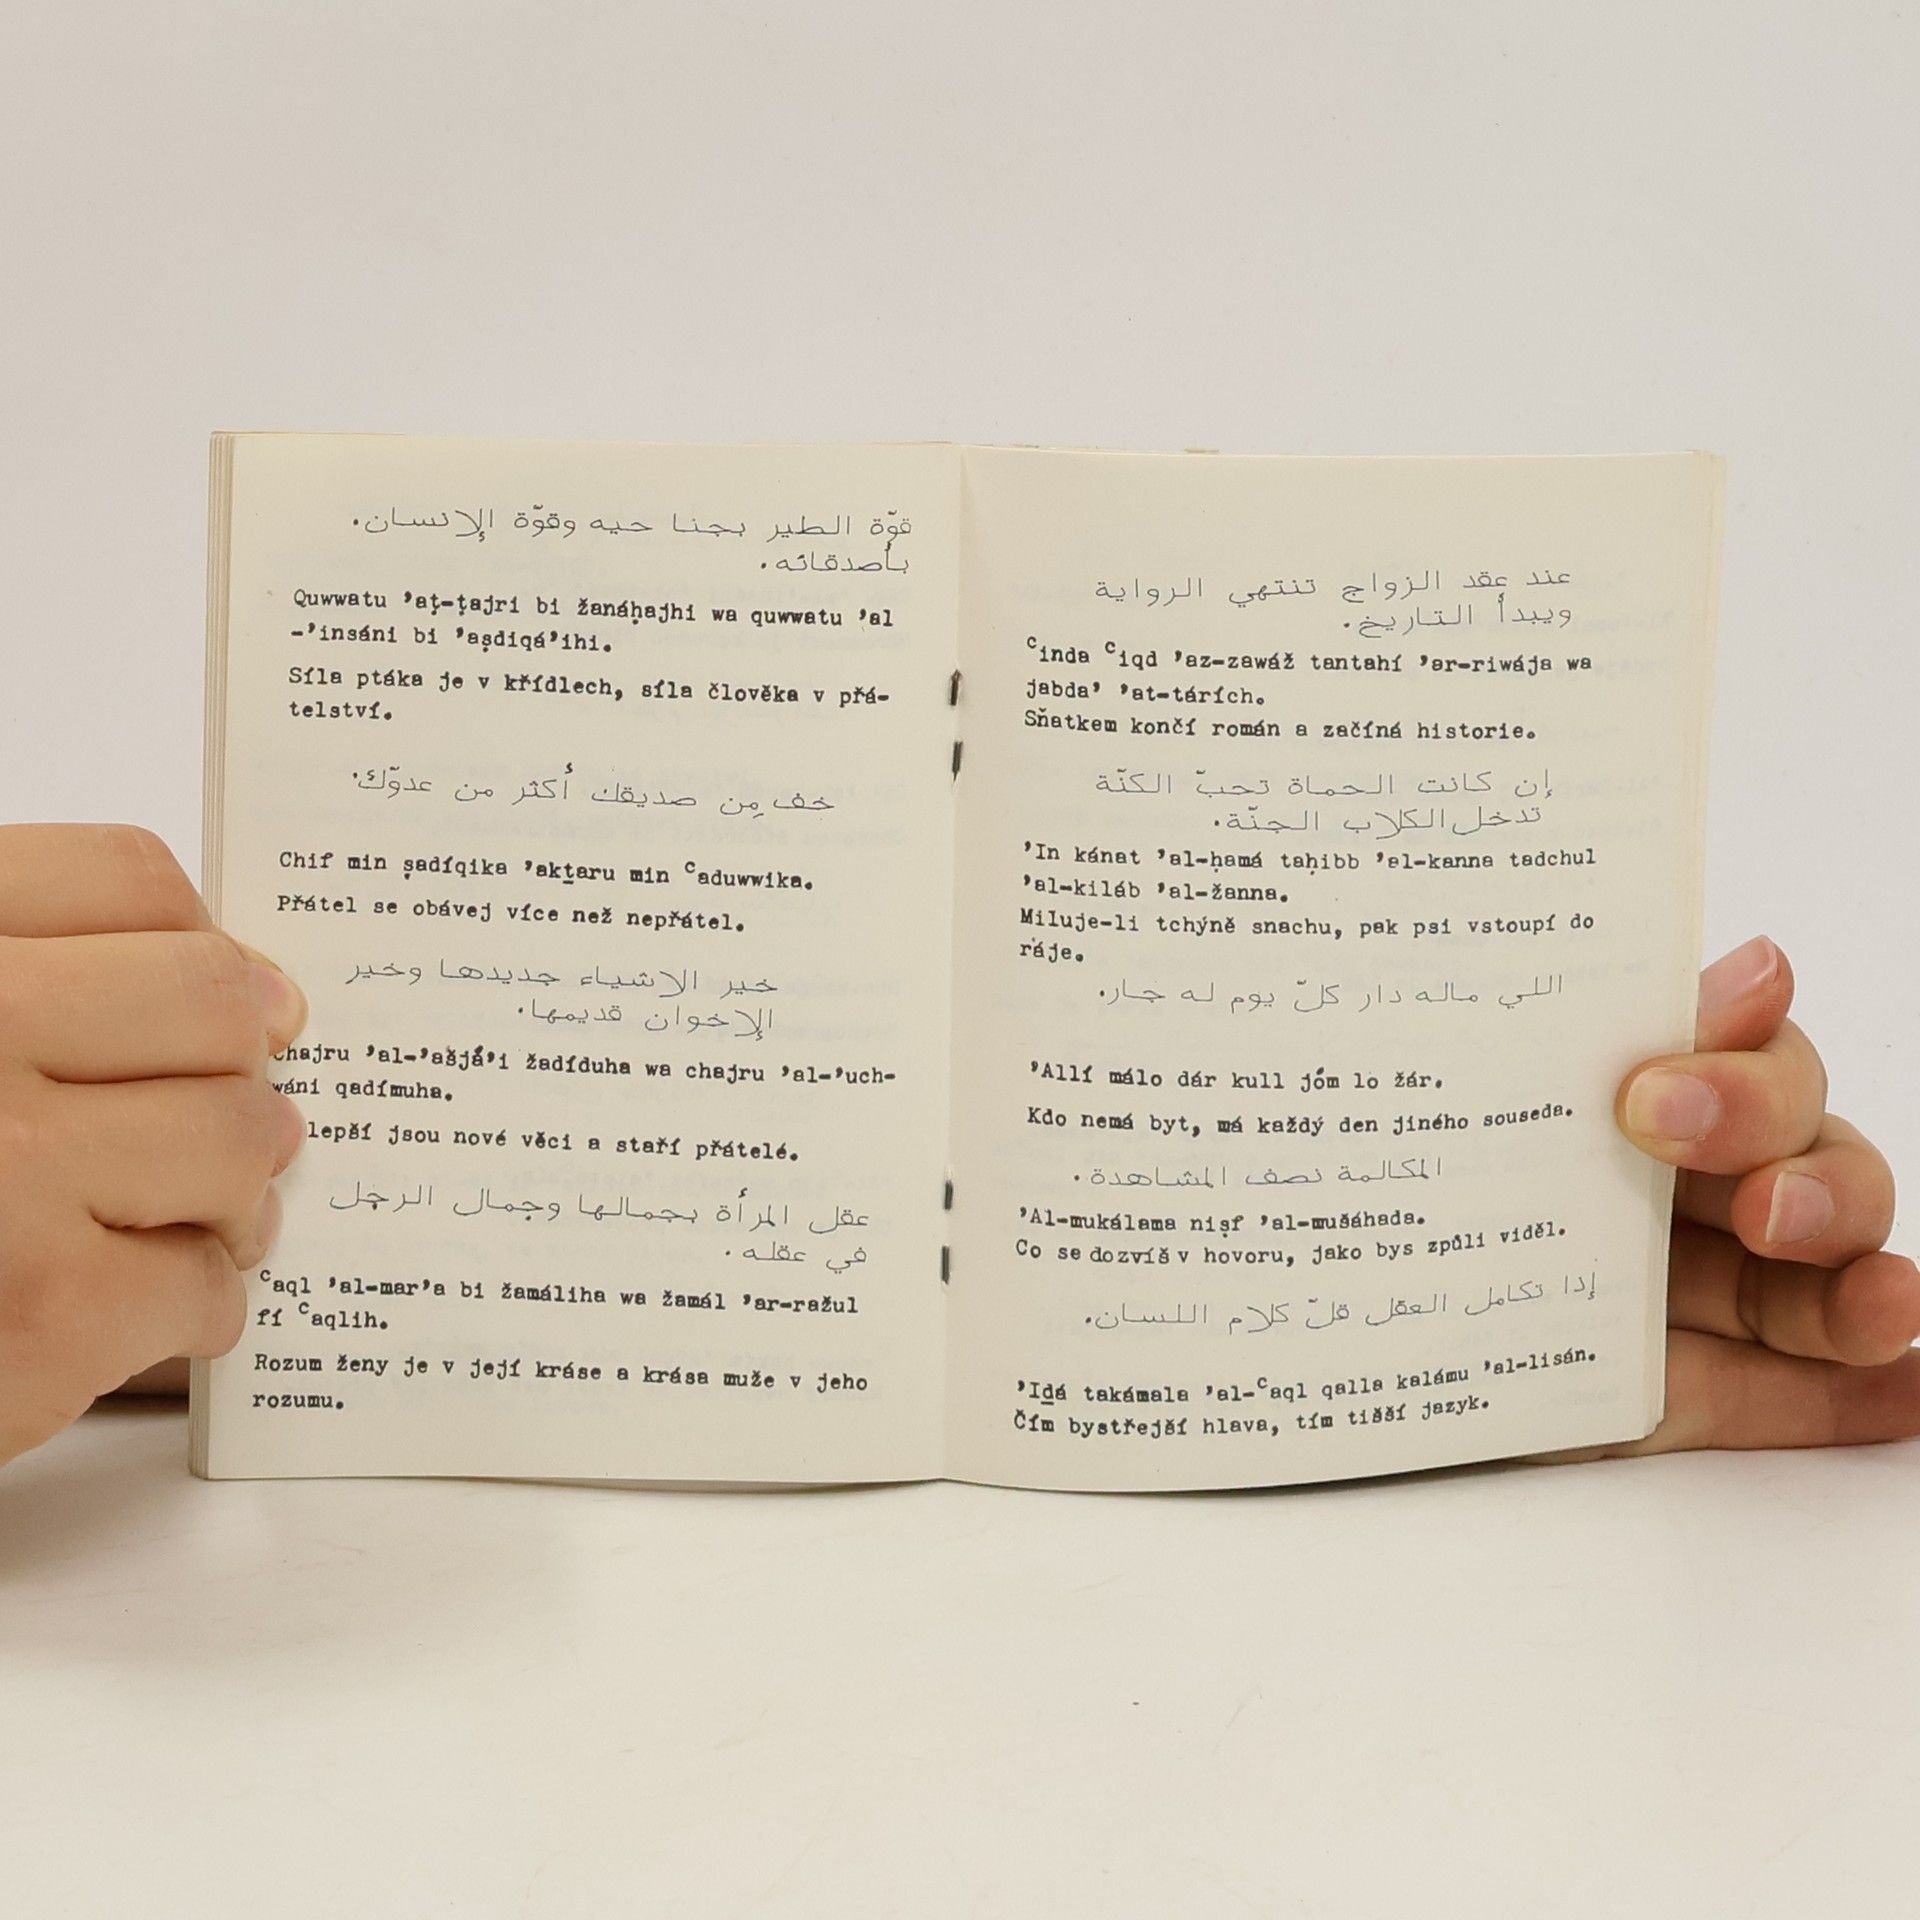 قوّة الطير بجنا حيه وقوّة الإنسان.
بأصدقائه.
Quwwatu ’aṭ-ṭajri bi žanáḥajhi wa quwwatu ’al
-’insáni bi ’aṣdiqá’ihi.
Síla ptáka je v křídlech, síla člověka v přá-
telství.
خف مِن صديقك أكثر من عدوّك.
Chif min ṣadíqika ’akṯaru min ᶜaduwwika.
Přátel se obávej více než nepřátel.
خير الاشياء جديدها وخير
الإخوان قديمها.
Chajru ’al-’ašjá’i žadíduha wa chajru ’al-’uch-
wáni qadímuha.
lepší jsou nové věci a staří přátelé.
عقل المرأة بجمالها وجمال الرجل
في عقله.
ᶜaql ’al-mar’a bi žamáliha wa žamál ’ar-ražul
fí ᶜaqlih.
Rozum ženy je v její kráse a krása muže v jeho
rozumu.
عند عقد الزواج تنتهي الرواية
ويبدأ التاريخ.
ᶜinda ᶜiqd ’az-zawáž tantahí ’ar-riwája wa
jabda’ ’at-tárích.
Sňatkem končí román a začíná historie.
إن كانت الحماة تحبّ الكنّة
تدخل الكلاب الجنّة.
’In kánat ’al-ḥamá taḥibb ’el-kanna tadchul
’al-kiláb ’al-žanna.
Miluje-li tchýně snachu, pak psi vstoupí do
ráje.
اللي ماله دار كلّ يوم له جار.
’Allí málo dár kull jóm lo žár.
Kdo nemá byt, má každý den jiného souseda.
المكالمة نصف المشاهدة.
’Al-mukálama niṣf ’al-mušáhada.
Co se dozvíš v hovoru, jako bys způli viděl.
إدا تكامل العقل قلّ كلام اللسان.
’Iḏá takámala ’al-ᶜaql qalla kalámu ’al-lisán.
Čím bystřejší hlava, tím tišší jazyk.